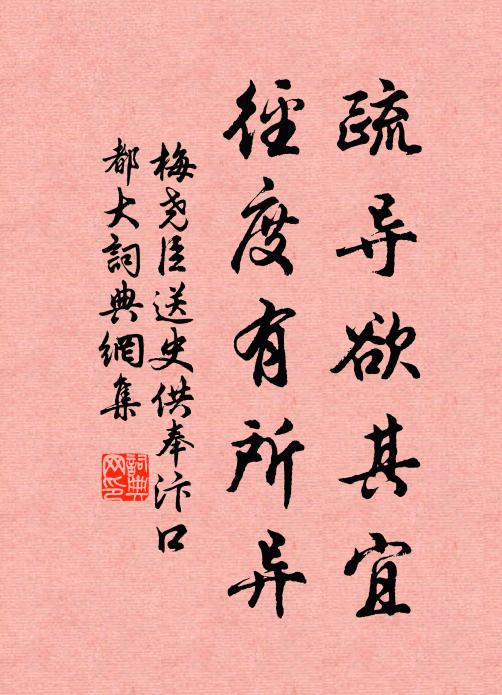 疏导欲其宜
徑度有所异
梅尧臣送史供奉汴口
都大詞典網集
詞典
网印